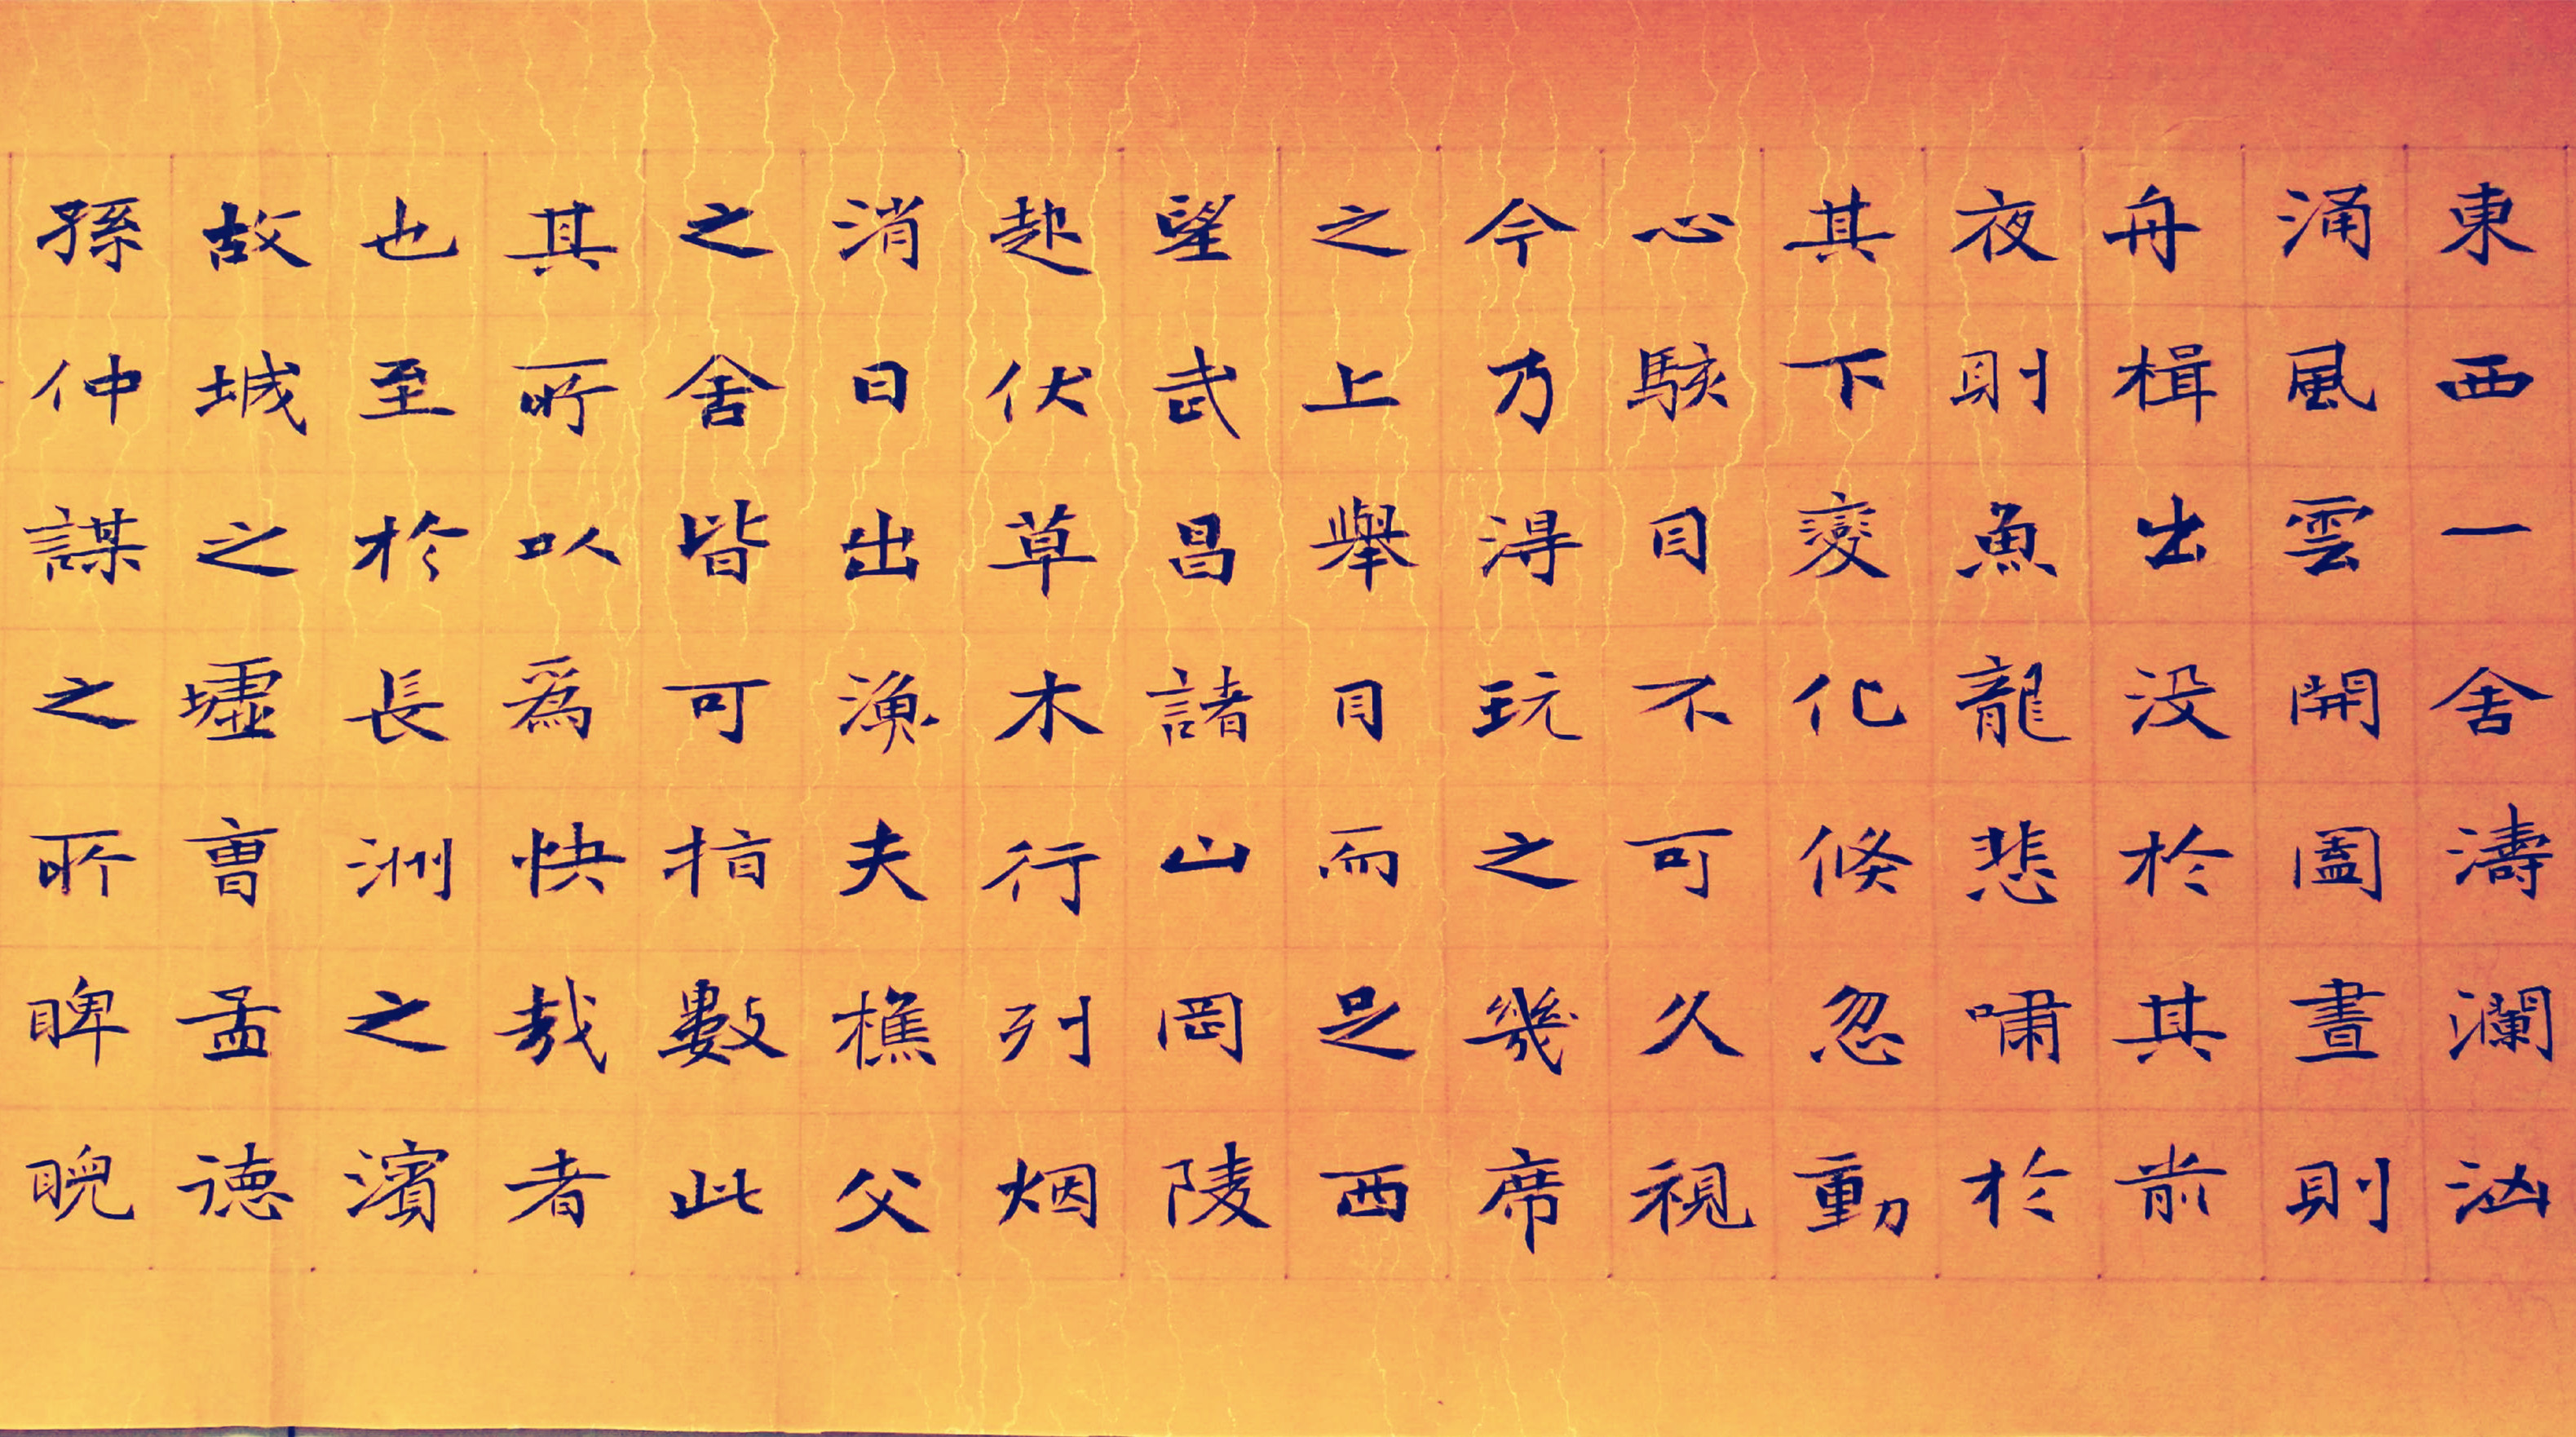 東西一舍濤瀾洶
涌風雲開闔晝則
舟楫出没於其前
夜則魚龍悲嘯於
其下變化倏忽動
心駭目不可久視
今乃得玩之几席
之上舉目而足西
望武昌諸山岡陵
起伏草木行列烟
消日出漁夫樵父
之舍皆可指數此
其所以爲快哉者
也至於長洲之濱
故城之墟曹孟德
孫仲謀之所睥睨